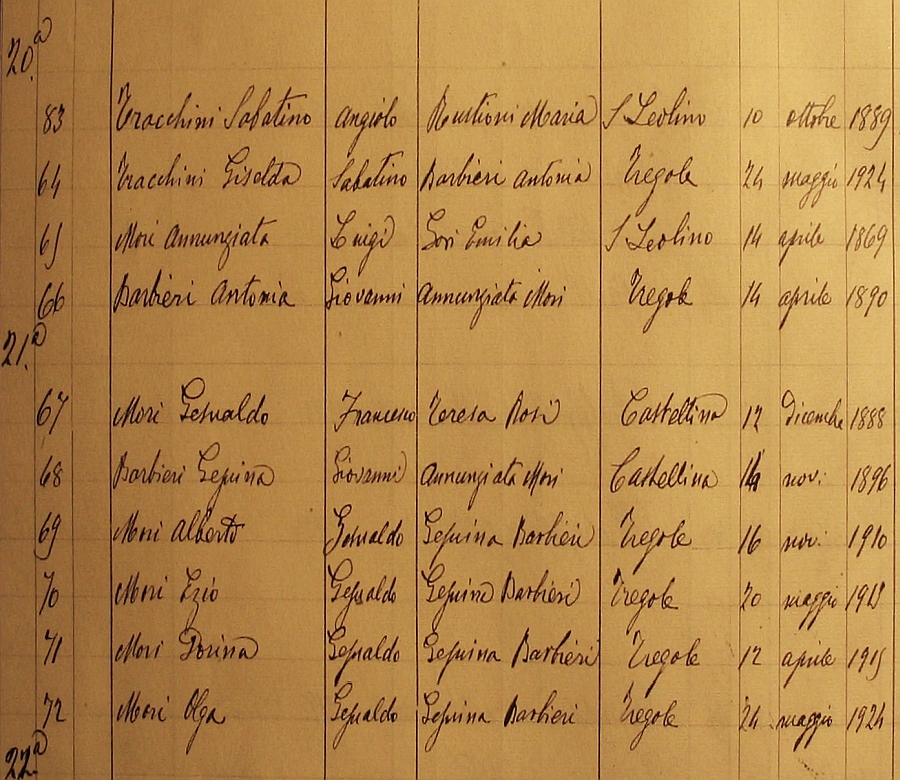 20.a
83 Tracchini Sabatino Angiolo Rustioni Maria S Leolino 10 ottobre 1889
64 Tracchini Giselda Sabatino Barbieri Antonia Tregole 24 maggio 1924
65 Mori Annunziata Luigi Gori Emilia S Leolino 14 aprile 1869
66 Barbieri Antonia Giovanni Annunziata Mori Tregole 14 aprile 1890
21.a
67 Mori Gesualdo Francesco Teresa Rosi Castellina 12 dicembre 1888
68 Barbieri Gepina Giovanni Annunziata Mori Castellina nov: 1896
69 Mori Alberto Gesualdo Gepina Barbieri Tregole 16 nov: 1910
70 Mori Ezio Gesualdo Gepina Barbieri Tregole 20 maggio
71 Mori Dorina Gesualdo Gepina Barbieri Tregole 12 aprile 1915
72 Mori Olga Gesualdo Gepina Barbieri Tregole 24 maggio 1924
22.a